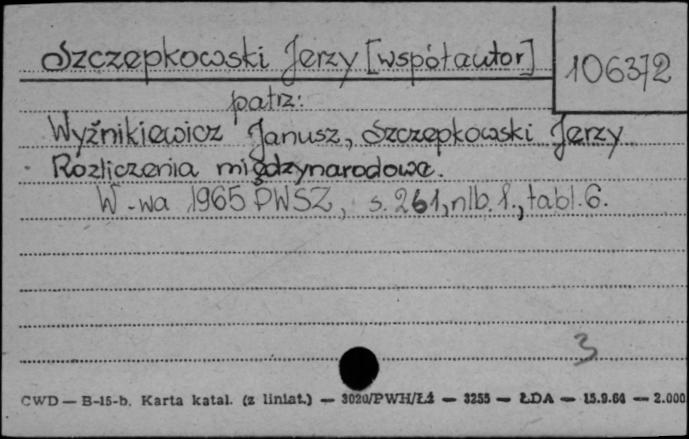 Szczepkowski Jerzy [współautor]
106372
patrz:
Wyźnikiewicz Janusz, Szczepkowski Jerzy
Rozliczenia międzynarodowe.
W-wa 1965 PWSZ, s. 261, nlb. 1., tabl. 6.
3
CWD — B-15-b. Karta katal. (z liniat.) — 3020/PWH/Łź — 3255 — ŁDA — 15.9.64 — 2.000